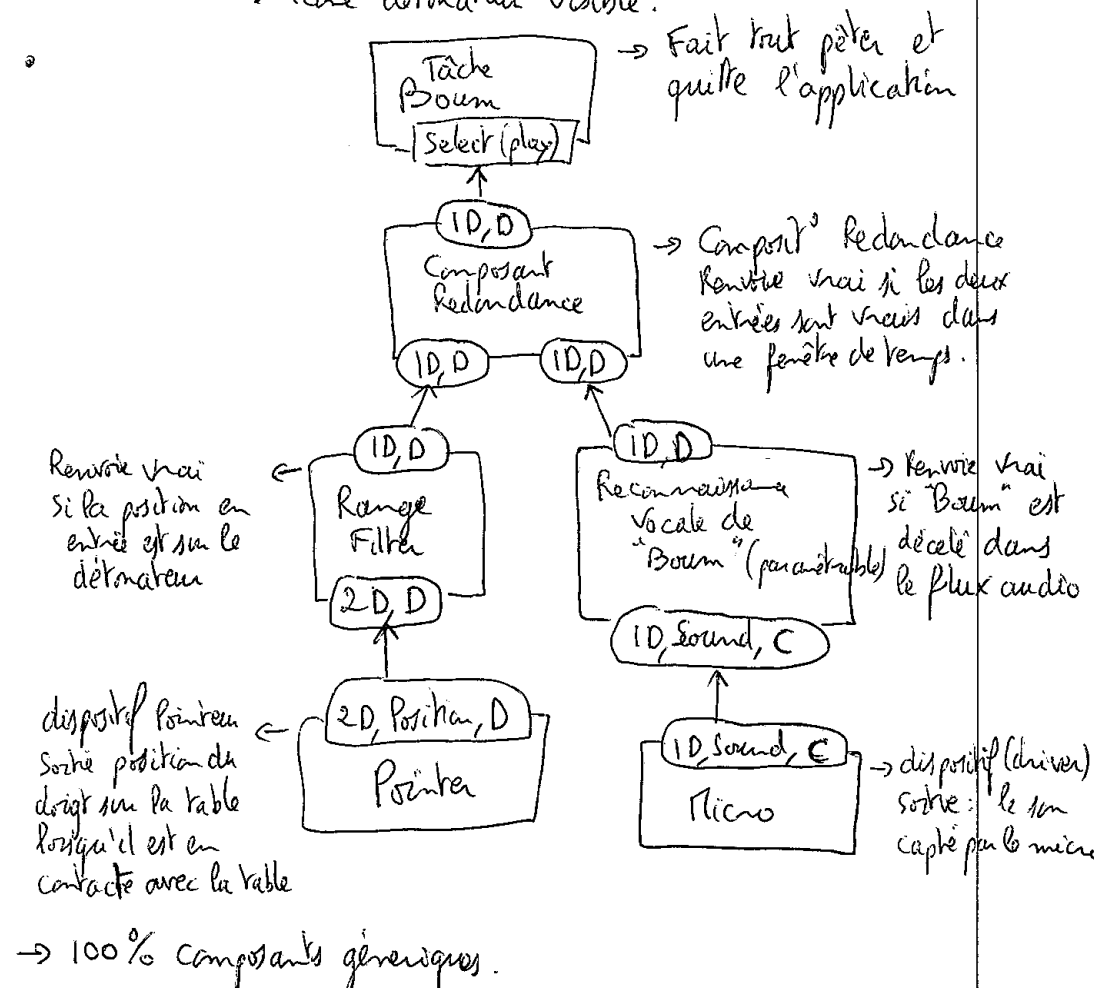 détonateur visible.
Tâche
Boum
Select (play)
→ Fait tout péter et
quitte l'application
1D, D
Composant
Redondance
1D, D
1D, D
→ Composit° Redondance
Renvoie vrai si les deux
entrées sont vrais dans
une fenêtre de temps.
Renvoie vrai
si la position en
entrée est sur le
détonateur
1D, D
Range
Filter
2D, D
1D, D
Reconnaissance
vocale de
"Boum" (paramétrable)
1D, Sound, C
→ Renvoie vrai
si "Boum" est
décelé dans
le flux audio
dispositif Pointeur
Sortie position du
doigt sur la table
lorsqu'il est en
contacte avec la table
2D, Position, D
Pointer
1D, Sound, C
Micro
→ dispositif (driver)
sortie : le son
capté par le micro
→ 100% composants génériques.